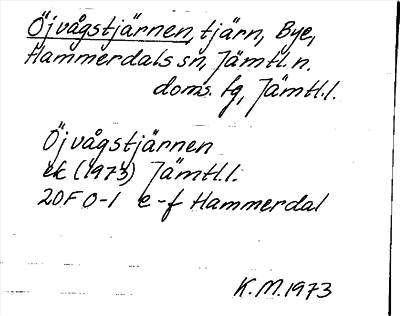 Öjvågstjärnen, tjärn, Bye,
Hammerdals sn, Jämtl. n.
doms. fg, Jämtl.l.
Öjvågstjärnen
ek (1973) Jämtl.l.
20F 0-1 e-f Hammerdal
K.M. 1973